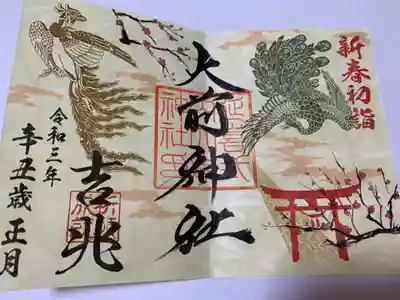 新春初詣
大前神社
吉兆
令和三年
辛丑歳 正月